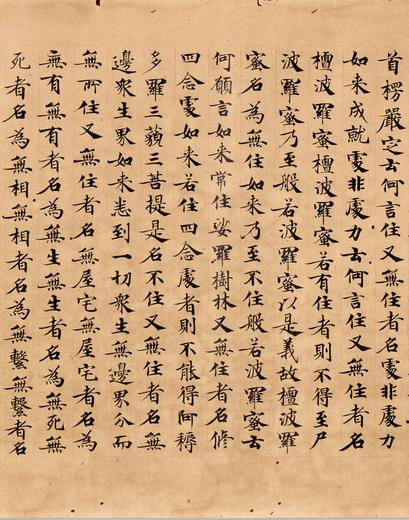 首楞嚴定云何言住又無住者名非處力
如来成就處非處力云何言住又無住者名
檀波羅蜜檀波羅蜜若有住者則不得至尸
波羅蜜乃至般若波羅蜜以是義故檀波羅
蜜名為無住如来乃至不住般若波羅蜜云
何願言如来常住娑羅樹林又無住者名脩
四念處如来若住四念處者則不能得阿耨
多羅三藐三菩提是名不住又無住者名無
邊衆生界如来悉到一切衆生無邊界分而
無所住又無住者名無屋宅無屋宅者名為
無有無有者名為無生無生者名為無死無
死者名為無相無相者名為無繫無繫者名